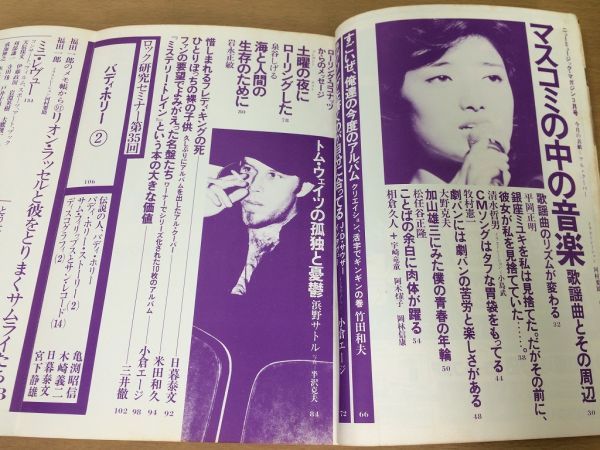 ニューミュージック・マガジン3月号
マスコミの中の音楽
歌謡曲とその周辺
30
歌謡曲のリズムが変わる
32
平岡正明
銀座はユキを私は見捨てた。だがその前に、
彼女が私を見捨てていた……。
38
清水哲男
CMソングはタフな胃袋をもってる
44
牧村憲一
劇バンには劇バンの苦労と楽しさがある
48
大野克夫
加山雄三にみた僕の青春の年輪
50
松任谷正隆
ことばの余白に肉体が躍る
54
相倉久人＋宇崎竜童 阿木燿子 岡林信康
すごいぜ、俺達の今度のアルバム
クリエイション、活字でギンギンの巻
竹田和夫
66
小倉エージ
72
トム・ウェイツの孤独と憂鬱
浜野サトル
84
ローリング・ココナツからのメッセージ
土曜の夜に
ローリングした
78
泉谷しげる
海と人間の
生存のために
80
岩永正敏
惜しまれるフレディ・キングの死
日暮泰文
92
ひとりぼっちの裸の子供
久しぶりにアルバムを出したアル・クーパー
米田和久
94
ファンの要望でよみがえった名盤たち
ワーナーでシリーズ化された10枚のアルバム
小倉エージ
98
「ミステリー・トレイン」という本の大きな価値
三井徹
102
ロック研究セミナー 第35回
バディ・ホリー②
106
伝説の人、バディ・ホリー
亀渕昭信
バディ・ホリー・ストーリー(2)
木崎義二
サム・フィリップスとサン・レコード(14)
日暮泰文
ディスコグラフィ(2)
宮下静雄
福田一郎のメモ帳から
福田一郎
リオン・ラッセルと彼をとりまくサムライたち
ミニ・レヴュー
134